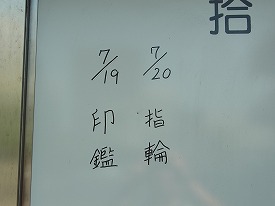 拾
7/20 指輪
7/19 印鑑